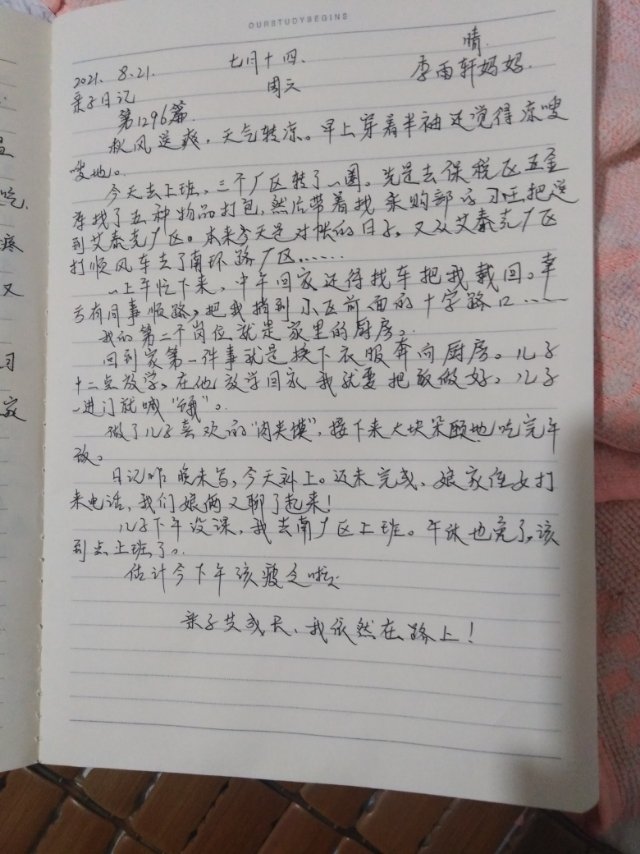 OURSTUDYBEGINS
2021. 8.21. 七月十四. 晴.
亲子日记 周六 李雨轩妈妈.
第1296篇.
秋风送爽，天气转凉。早上穿着半袖还觉得凉嗖
嗖地。
今天去上班，三个厂区转了一圈。先是去保税区五金
库找了五种物品打包，然后带着找采购部的小王把送
到艾泰克厂区。本来今天是对帐的日子，又从艾泰克厂区
打顺风车去了南环路厂区……
一上午忙下来，中午回家还得找车把我载回。幸
亏有同事顺路，把我捎到小区前面的十字路口……
我的第二个岗位就是家里的厨房。
回到家第一件事就是换下衣服奔向厨房。儿子
十二点放学，在他放学回家我就要把饭做好。儿子
一进门就喊“饿”。
做了儿子喜欢的“肉夹馍”，接下来大块朵颐地吃完午
饭。
日记昨晚未写，今天补上。还未完成，娘家侄女打
来电话，我们娘俩又聊了起来！
儿子下午没课，我去南厂区上班。午休也完了，该
到点上班了。
估计今下午该疲乏啦
亲子共成长，我依然在路上！